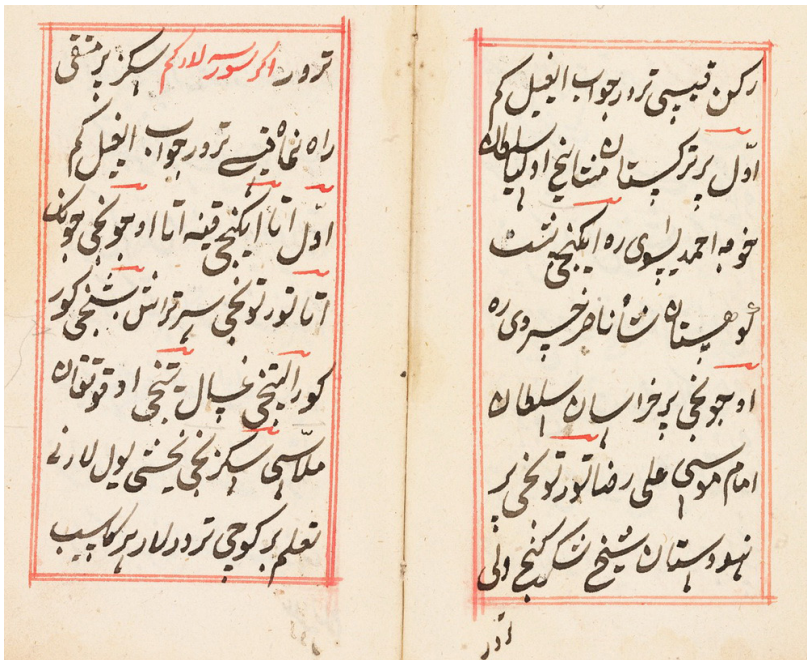 رکن قیسی ترور جواب ایغیل کم
اوّل پر ترکستان اولیا سلطان
خوجه احمد یسوی ره ایکنجی
کوهستان ناصر خسروی ره
اوجونجی پر خراسان سلطان
امام موسی علی رضا تورتونجی پر
هندوستان شیخ شکر کنج ولی
ترور
ترور اکر سورسه لار کم سکز پر متقی
راه نماه قیسی ترور جواب ایغیل کم
اوّل اتا ایکنجی قینه اتا اوجونجی جونک
اتا تورتونجی سرتراش بشنجی کور
کور التنجی غسال یتنجی اوقوتقان
ملّاسی سکزنجی یخشی یول لارنی
تعلم برکوجی ترورلار هر کاسب